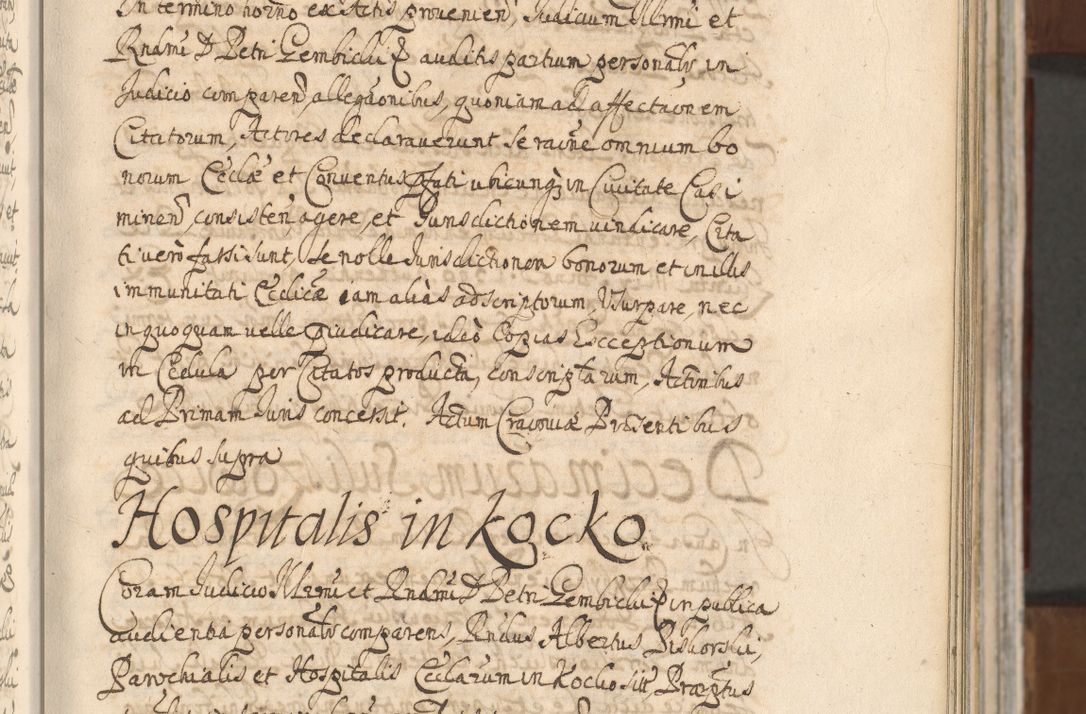 In termino horno ex Actis provenien, Judicium Illrmi et
Rndmi D Petri Gembicki E auditis partium personalr in
Judicio comparen, allegaonibus, quoniam ad affectaonem
Citatorum, Actores declaraverunt se raône omnium bo
norum Eccłae et Conventus pfati ubicunq in Civitate Casi
miren, consisten, agere, et Jurisdictionem vindicare, Cita
ti vero fassi sunt, se nolle Jurisdictionem bonorum et in illis
immunitati Ecclicae iam alias adscriptorum, Usurpare, nec
in quoquam velle praejudicare, ideo Copias Exceptionum
in Cedula per Citatos producta, conscriptarum, Actoribus
ad Primam Juris concessit. Actum Cracoviae Praesentibus
quibus supra
Hospitalis in Kocko
Coram Judicio Illrmi et Rndmi D Petri Gembicki E in publica
audientia personalr comparens, Rndus Albertus Piskorski,
Parochialis et Hospitalis Ecclarum in Kocko sitt, Praeptus